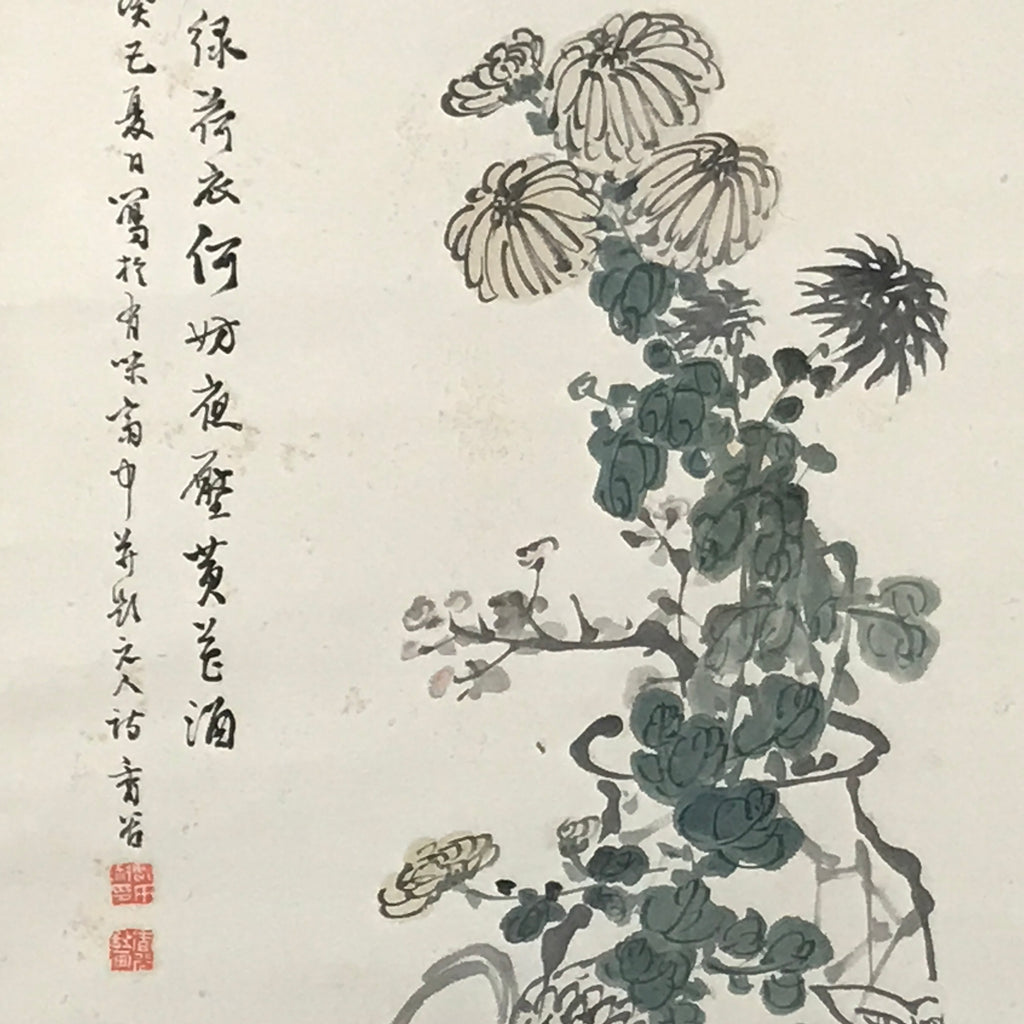 绿荷衣何妨夜压黄花酒
癸巳夏日写於有味斋中并题元人诗 青谷